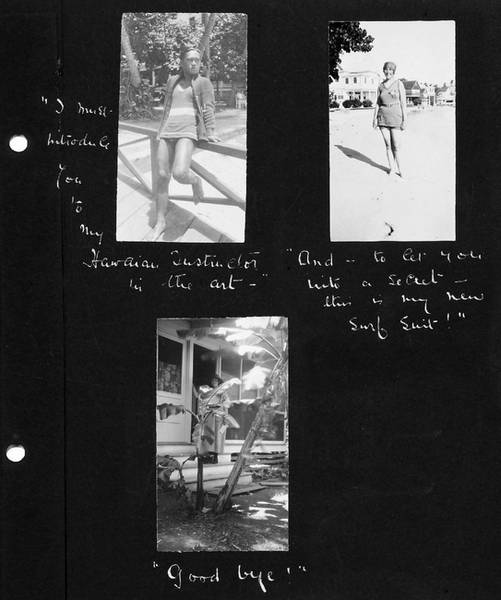 "I must
introduce
you
to
my
Hawaiian Instructor
in the art –"
"And – to let you
into a secret –
this is my new
Surf Suit!"
"Good bye!"